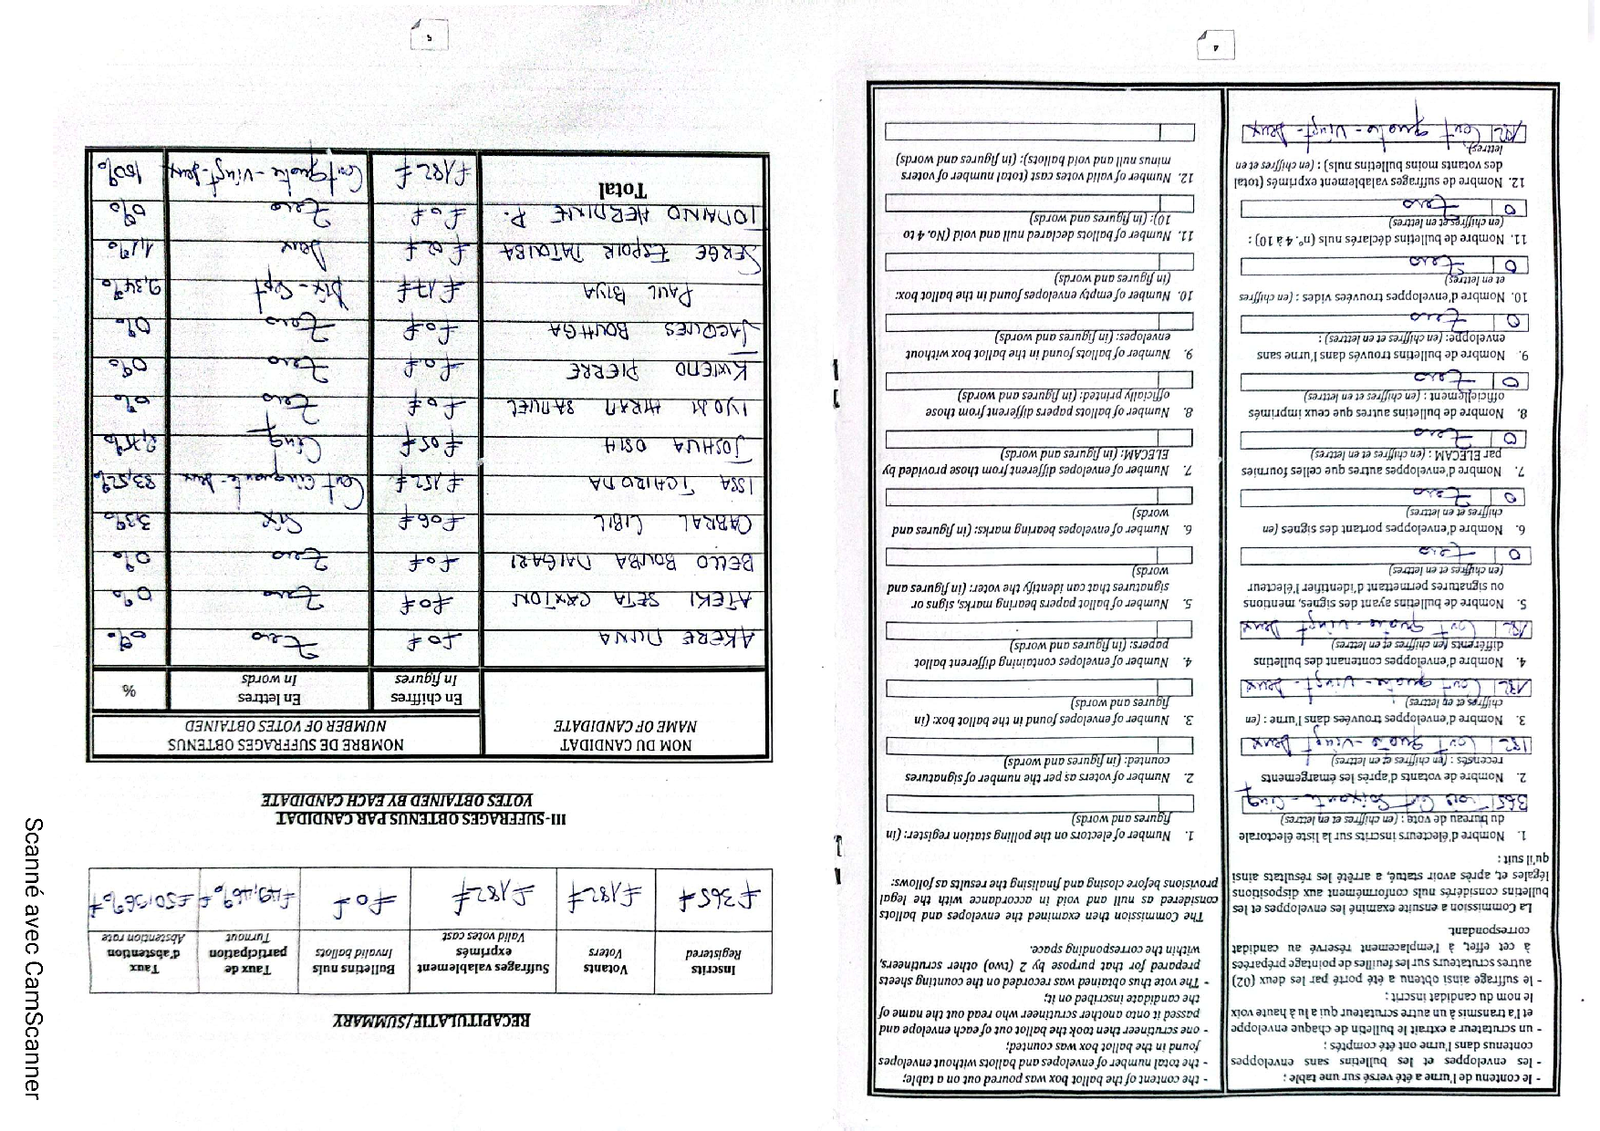 - le contenu de l'urne a été versé sur une table ;
- les enveloppes et les bulletins sans enveloppes
contenus dans l'urne ont été comptés ;
- un scrutateur a extrait le bulletin de chaque enveloppe
et l'a transmis à un autre scrutateur qui a lu à haute voix
le nom du candidat inscrit ;
- le suffrage ainsi obtenu a été porté par les deux (02)
autres scrutateurs sur les feuilles de pointage préparées
à cet effet, à l'emplacement réservé au candidat
correspondant.
La Commission a ensuite examiné les enveloppes et les
bulletins considérés nuls conformément aux dispositions
légales et, après avoir statué, a arrêté les résultats ainsi
qu'il suit :
1. Nombre d'électeurs inscrits sur la liste électorale
du bureau de vote : (en chiffres et en lettres)
365 Trois Cent Soixante-Cinq
2. Nombre de votants d'après les émargements
recensés : (en chiffres et en lettres)
182 Cent Quatre-Vingt Deux
3. Nombre d'enveloppes trouvées dans l'urne : (en
chiffres et en lettres)
182 Cent quatre-Vingt-Deux
4. Nombre d'enveloppes contenant des bulletins
différents (en chiffres et en lettres)
182 Cent Quatre-Vingt Deux
5. Nombre de bulletins ayant des signes, mentions
ou signatures permettant d'identifier l'électeur
(en chiffres et en lettres)
0 Zero
6. Nombre d'enveloppes portant des signes (en
chiffres et en lettres)
0 Zero
7. Nombre d'enveloppes autres que celles fournies
par ELECAM : (en chiffres et en lettres)
0 Zero
8. Nombre de bulletins autres que ceux imprimés
officiellement : (en chiffres et en lettres)
0 Zero
9. Nombre de bulletins trouvés dans l'urne sans
enveloppe: (en chiffres et en lettres) :
0 Zero
10. Nombre d'enveloppes trouvées vides : (en chiffres
et en lettres)
0 Zero
11. Nombre de bulletins déclarés nuls (n°. 4 à 10) :
(en chiffres et en lettres)
0 Zero
12. Nombre de suffrages valablement exprimés (total
des votants moins bulletins nuls) : (en chiffres et en
lettres)
182 Cent quatre-Vingt-Deux
- the content of the ballot box was poured out on a table;
- the total number of envelopes and ballots without envelopes
found in the ballot box was counted;
- one scrutineer then took the ballot out of each envelope and
passed it onto another scrutineer who read out the name of
the candidate inscribed on it;
- The vote thus obtained was recorded on the counting sheets
prepared for that purpose by 2 (two) other scrutineers,
within the corresponding space.
The Commission then examined the envelopes and ballots
considered as null and void in accordance with the legal
provisions before closing and finalising the results as follows:
1. Number of electors on the polling station register: (in
figures and words)
2. Number of voters as per the number of signatures
counted: (in figures and words)
3. Number of envelopes found in the ballot box: (in
figures and words)
4. Number of envelopes containing different ballot
papers: (in figures and words)
5. Number of ballot papers bearing marks, signs or
signatures that can identify the voter: (in figures and
words)
6. Number of envelopes bearing marks: (in figures and
words)
7. Number of envelopes different from those provided by
ELECAM: (in figures and words)
8. Number of ballots papers different from those
officially printed: (in figures and words)
9. Number of ballots found in the ballot box without
envelopes: (in figures and words)
10. Number of empty envelopes found in the ballot box:
(in figures and words)
11. Number of ballots declared null and void (No. 4 to
10): (in figures and words)
12. Number of valid votes cast (total number of voters
minus null and void ballots): (in figures and words)
4
RECAPITULATIF/SUMMARY
Inscrits Votants Suffrages valablement exprimés Bulletins nuls Taux de participation Taux d'abstention
Registered Voters Valid votes cast Invalid ballots Turnout Abstention rate
£365₣ £182₣ £182₣ £0₣ £49,46%₣ £50,136%₣
III- SUFFRAGES OBTENUS PAR CANDIDAT
VOTES OBTAINED BY EACH CANDIDATE
NOM DU CANDIDAT NOMBRE DE SUFFRAGES OBTENUS
NAME OF CANDIDATE NUMBER OF VOTES OBTAINED
En chiffres En lettres %
In figures In words
AKERE MUNA £0₣ Zero 0%
ATEKI SETA CAXTON £0₣ Zero 0%
BELLO BOUBA MAIGARI £0₣ Zero 0%
CABRAL LIBII £06₣ Six 3,3%
ISSA TCHIROMA £152₣ Cent Cinquante-Deux 83,52%
JOSHUA OSIH £05₣ Cinq 2,75%
IYODI HIRAM SAMUEL £0₣ Zero 0%
KWEMO PIERRE £0₣ Zero 0%
JACQUES BOUHGA £0₣ Zero 0%
PAUL BIYA £17₣ Dix-Sept 9,34%
SERGE ESPOIR MATOMBA £02₣ Deux 1,1%
TOMAINO HERMINE P. £0₣ Zero 0%
Total £182₣ Cent Quatre-Vingt-Deux 100%
5
Scanné avec CamScanner